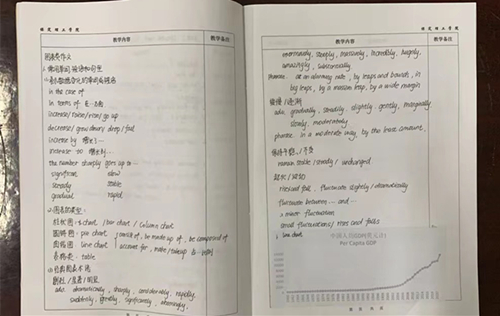 教学内容
教学备注
图表类作文
in the case of
in terms of 在…方面
increase/raise/rise/go up
decrease/grow down/drop/fall
increase by 增长了…
increase to 增长到…
the number sharply goes up to…
significant slow
steady stable
gradual rapid
2.图表的类型:
柱状图:a chart / bar chart / column chart
圆饼图:pie chart consist of, be made up of, be composed of
曲线图:line chart account for, make/take up
表格类:table
adv. dramatically, sharply, considerably, rapidly,
suddenly, greatly, significantly, alarmingly,
教学内容
教学备注
enormously, steeply, massively, incredibly, hugely,
amazingly, substantially
phrase: at an alarming rate, by leaps and bounds, in
big leaps, by a massive leap, by a wide margin
缓慢/逐渐
adv. gradually, steadily, slightly, gently, marginally
slowly, moderately
phrase: in a moderate way, by the least amount,
保持平稳/不变
remain stable/steady/unchanged
起伏/波动
rise and fall, fluctuate slightly/dramatically
fluctuate between … and …
a minor fluctuation
small fluctuations/rises and falls
line chart
中国人均GDP(美元计)
Per Capita GDP